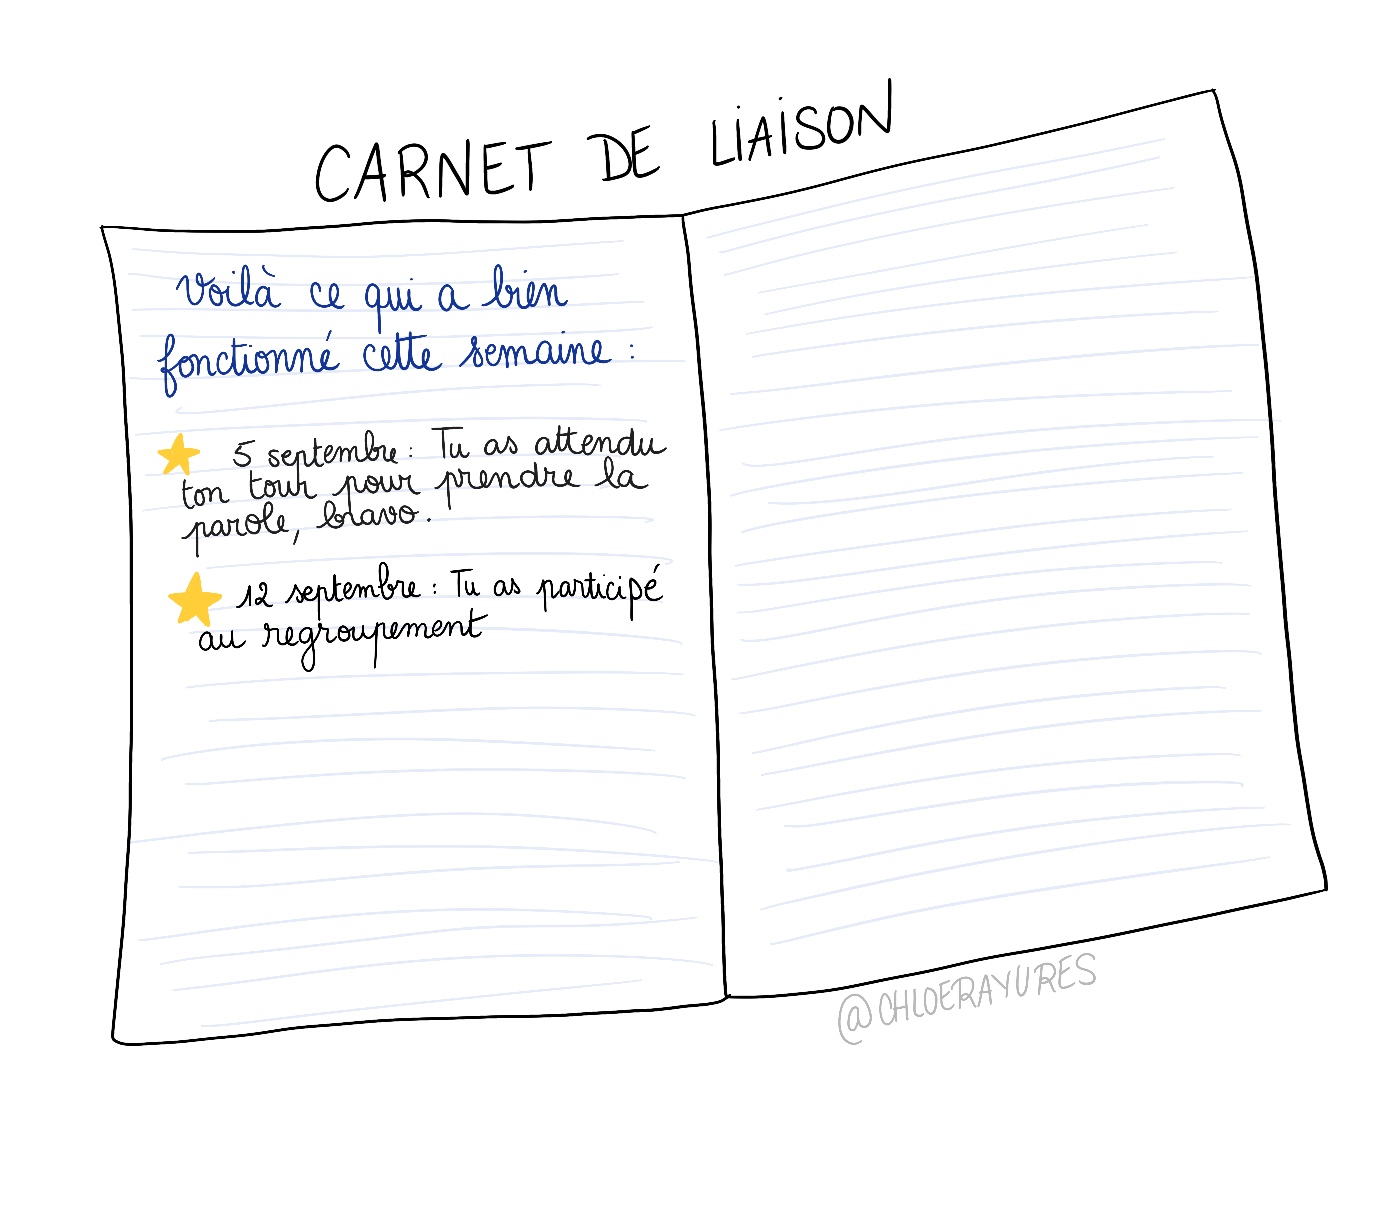 CARNET DE LIAISON
Voilà ce qui a bien
fonctionné cette semaine :
5 septembre : Tu as attendu
ton tour pour prendre la
parole, bravo.
12 septembre : Tu as participé
au regroupement
@CHLOERAYURES